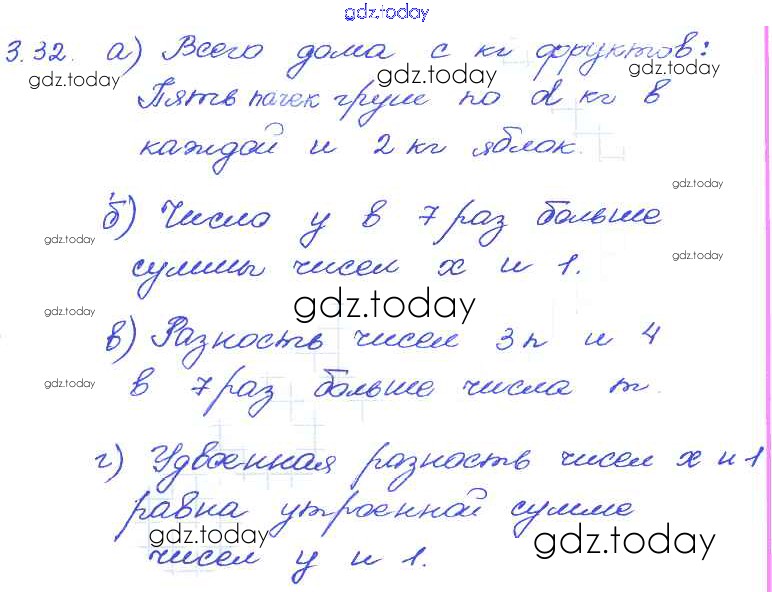 gdz.today
3.32. а) Всего дома с кг фруктов:
gdz.today gdz.today gdz.today
Пять пачек груш по d кг в
каждой и 2 кг яблок.
gdz.today
б) Число y в 7 раз больше
gdz.today
суммы чисел x и 1.
gdz.today
gdz.today
gdz.today
в) Разность чисел 3n и 4
в 7 раз больше числа m.
gdz.today
г) Удвоенная разность чисел x и 1
равна утроенной сумме
gdz.today gdz.today
чисел y и 1.